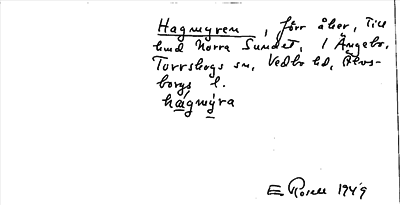 Hagmyren, förr åker, till
hmd Norra Sundet, 1 Ängebo,
Torrskogs sn, Vedbo hd, Älvs-
borgs l.
hágmýra
E Rosell 1949